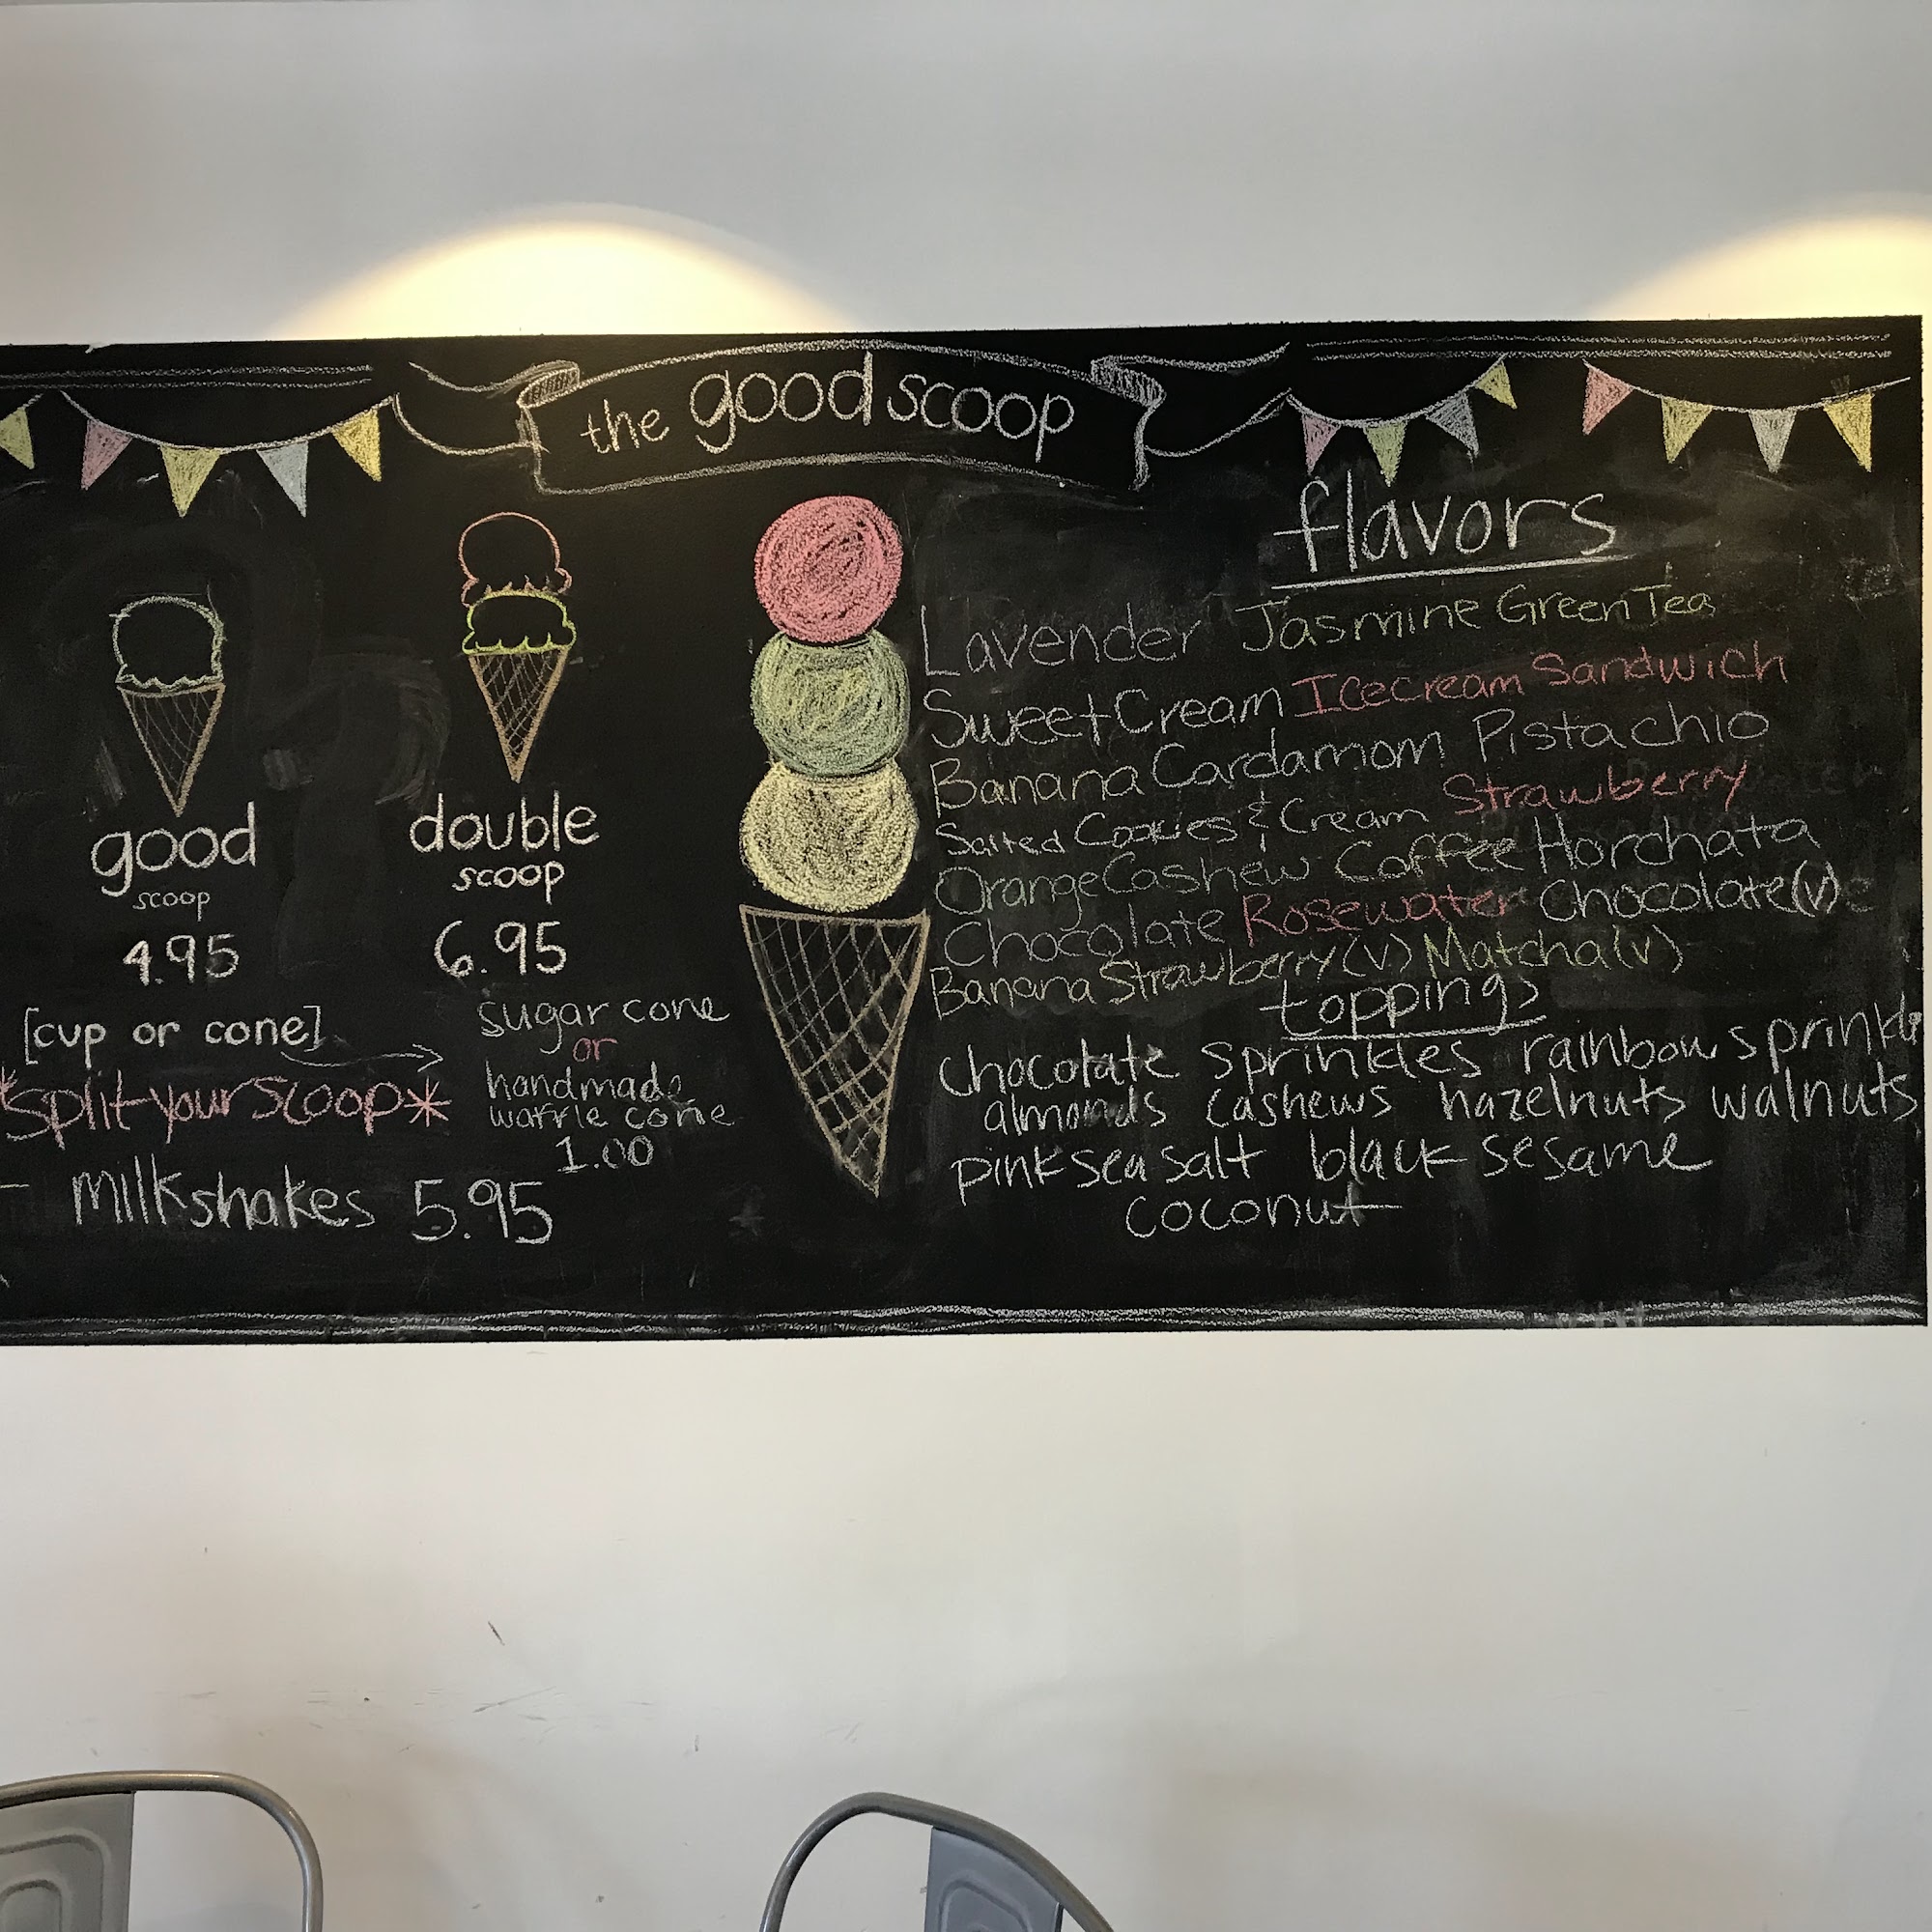 the good scoop
good
scoop
4.95
[cup or cone]
*split your scoop*
double
scoop
6.95
sugar cone
or
handmade
waffle cone
1.00
milkshakes 5.95
flavors
Lavender Jasmine Green Tea
Sweet Cream Icecream Sandwich
Banana Cardamom Pistachio
Salted Cookies & Cream Strawberry
Orange Cashew Coffee Horchata
Chocolate Rosewater Chocolate (v)
Banana Strawberry (v) Matcha (v)
toppings
chocolate sprinkles rainbow sprinkle
almonds cashews hazelnuts walnuts
pink sea salt black sesame
coconut